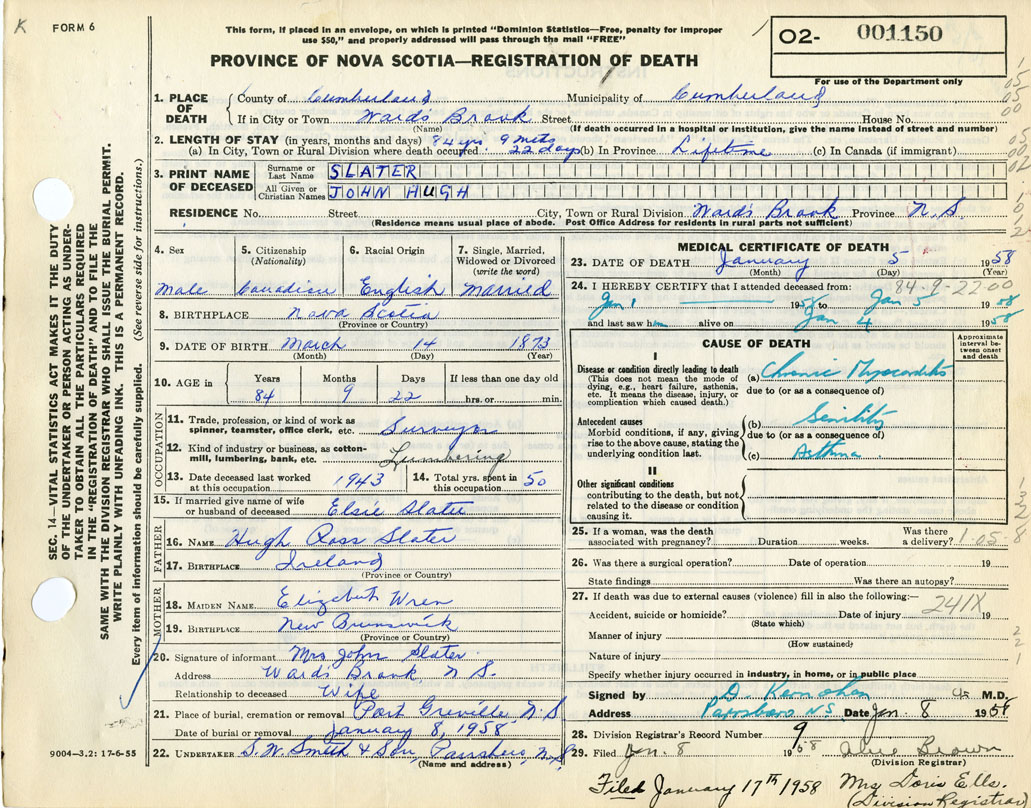 K FORM 6
This form, if placed in an envelope, on which is printed "Dominion Statistics—Free, penalty for improper
use $50," and properly addressed will pass through the mail "FREE"
PROVINCE OF NOVA SCOTIA—REGISTRATION OF DEATH
O2- 001150
For use of the Department only
SEC. 14—VITAL STATISTICS ACT MAKES IT THE DUTY
OF THE UNDERTAKER OR PERSON ACTING AS UNDER-
TAKER TO OBTAIN ALL THE PARTICULARS REQUIRED
IN THE "REGISTRATION OF DEATH" AND TO FILE THE
SAME WITH THE DIVISION REGISTRAR WHO SHALL ISSUE THE BURIAL PERMIT.
WRITE PLAINLY WITH UNFADING INK. THIS IS A PERMANENT RECORD.
Every item of information should be carefully supplied. (See reverse side for instructions.)
1. PLACE OF DEATH County of Cumberland Municipality of Cumberland
If in City or Town Wards Brook Street House No.
(Name) (If death occurred in a hospital or institution, give the name instead of street and number)
2. LENGTH OF STAY (in years, months and days) 84 yrs 9 mots
(a) In City, Town or Rural Division where death occurred 22 days (b) In Province Lifetime (c) In Canada (if immigrant)
3. PRINT NAME OF DECEASED Surname or Last Name SLATER
All Given or Christian Names JOHN HUGH
RESIDENCE No. Street City, Town or Rural Division Wards Brook Province N.S
(Residence means usual place of abode. Post Office Address for residents in rural parts not sufficient)
4. Sex 5. Citizenship (Nationality) 6. Racial Origin 7. Single, Married, Widowed or Divorced (write the word)
Male Canadian English Married
8. BIRTHPLACE Nova Scotia
(Province or Country)
9. DATE OF BIRTH March 14 1873
(Month) (Day) (Year)
10. AGE in Years Months Days If less than one day old
84 9 22 hrs. or min.
OCCUPATION
11. Trade, profession, or kind of work as spinner, teamster, office clerk, etc. Surveyor
12. Kind of industry or business, as cotton-mill, lumbering, bank, etc. Lumbering
13. Date deceased last worked at this occupation 1943 14. Total yrs. spent in this occupation 50
15. If married give name of wife or husband of deceased Elsie Slater
FATHER
16. NAME Hugh Ross Slater
17. BIRTHPLACE Ireland
(Province or Country)
MOTHER
18. MAIDEN NAME Elizabeth Wren
19. BIRTHPLACE New Brunswick
(Province or Country)
20. Signature of informant Mrs John Slater
Address Wards Brook, N S.
Relationship to deceased Wife
21. Place of burial, cremation or removal Port Greville N.S
Date of burial or removal January 8, 1958
22. UNDERTAKER S. W. Smith & Son, Parrsboro, N.S.
(Name and address)
9004—3.2: 17-6-55
MEDICAL CERTIFICATE OF DEATH
23. DATE OF DEATH January 5 1958
(Month) (Day) (Year)
84-9-22-00
24. I HEREBY CERTIFY that I attended deceased from:
Jan 1 1958 Jan 5 1958
and last saw him alive on Jan 4 1958
CAUSE OF DEATH Approximate interval between onset and death
I
Disease or condition directly leading to death
(This does not mean the mode of dying, e.g., heart failure, asthenia, etc. It means the disease, injury, or complication which caused death.)
(a) Chronic Myocarditis
due to (or as a consequence of)
Antecedent causes
Morbid conditions, if any, giving rise to the above cause, stating the underlying condition last.
(b) Senility
due to (or as a consequence of)
(c) Asthma
II
Other significant conditions
contributing to the death, but not related to the disease or condition causing it.
25. If a woman, was the death associated with pregnancy? Duration weeks. Was there a delivery?
26. Was there a surgical operation? Date of operation 19
State findings Was there an autopsy?
27. If death was due to external causes (violence) fill in also the following:— 241X
Accident, suicide or homicide? Date of injury 19
(State which)
Manner of injury
(How sustained)
Nature of injury
Specify whether injury occurred in industry, in home, or in public place
Signed by D. Kernohan M.D.
Address Parrsboro N.S. Date Jan. 8 1958
28. Division Registrar's Record Number 9
29. Filed Jan. 8 1958 Brown
(Division Registrar)
Filed January 17th 1958 Mrs Doris Ells.
(Division Registrar)